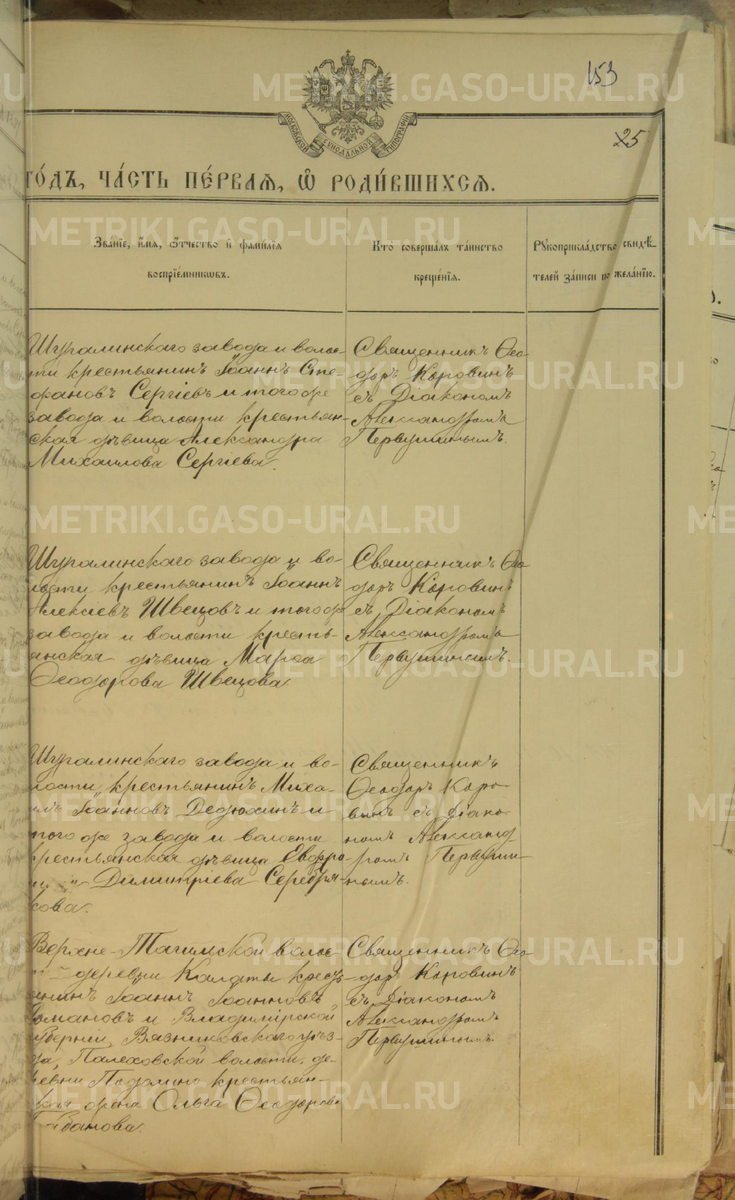 153
25
МОСКОВСКОЙ СѴНОДАЛЬНОЙ ТИПОГРАФІИ
го́дъ, ча́сть пе́рваѧ, ѡ҆ роди́вшихсѧ.
Зва́нїе, и҆́мѧ, ѻ҆́тчество и҆ фами́лїѧ
воспрїе́мникѡвъ.
Кто̀ соверша́лъ та́инство
креще́нїѧ.
Рꙋкоприкла́дство свидѣ́-
телей за́писи по жела́нїю.
Шуралинскаго завода и воло-
сти крестьянинъ Іоаннъ Сте-
фановъ Сергѣевъ и того же
завода и волости крестьян-
ская дѣвица Александра
Михаилова Сергѣева.
Священникъ Ѳео-
доръ Коровинъ
съ Діакономъ
Александромъ
Первушинымъ.
Шуралинскаго завода и во-
лости крестьянинъ Іоаннъ
Алексіевъ Швецовъ и того же
завода и волости кресть-
янская дѣвица Марѳа
Ѳеодорова Швецова
Священникъ Ѳео-
доръ Коровинъ
съ Діакономъ
Александромъ
Первушинымъ.
Шуралинскаго завода и во-
лости крестьянинъ Миха-
илъ Іоанновъ Дедюхинъ и
того же завода и волости
крестьянская дѣвица
Димитріева Серебря-
кова.
Священникъ
Ѳеодоръ Коро-
винъ съ Діако-
номъ Александ-
ромъ Первуши-
нымъ.
Верхне-Тагильской воло-
деревни Калаты крест-
янинъ Іоаннъ Іоанновъ
Романовъ и Владимірской
губерніи, Вязниковскаго уѣз-
да, Палеховской волости, де-
ревни крестьян-
ская жена Ольга Ѳеодорова
Священникъ Ѳео-
доръ Коровинъ
съ Діакономъ
Александромъ
Первушинымъ.
METRIKI.GASO-URAL.RU